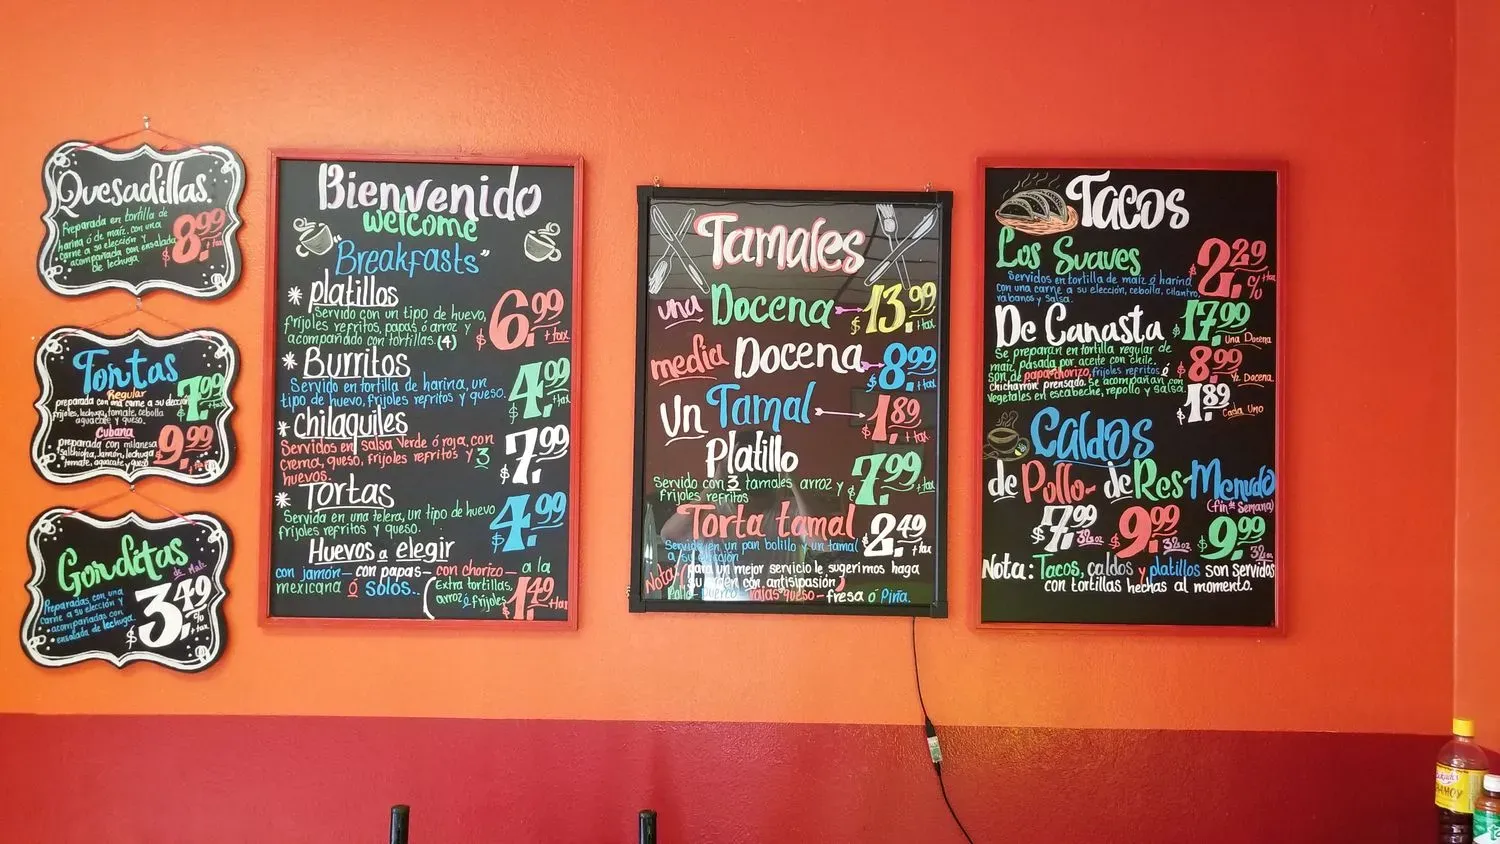 Quesadillas.
Preparada en tortilla de
harina ó de maíz. con una
carne a su elección y
acompañada con ensalada
de lechuga.
$8.99 + tax
Tortas
Regular
preparada con una carne a su elección
frijoles, lechuga, tomate, cebolla
aguacate y queso.
$7.99 + tax
Cubana
preparada con milanesa
salchicha, jamón, lechuga
tomate, aguacate y queso
$9.99 + tax
Gorditas
de Maíz
Preparadas con una
carne a su elección y
acompañadas con
ensalada de lechuga.
$3.49 c/u + tax
Bienvenido
welcome
"Breakfasts"
* Platillos
Servido con un tipo de huevo,
frijoles refritos, papas ó arroz y
acompañado con tortillas. (4)
$6.99 + tax
* Burritos
Servido en tortilla de harina, un
tipo de huevo, frijoles refritos y queso.
$4.99 + tax
* Chilaquiles
Servidos en salsa Verde ó roja, con
crema, queso, frijoles refritos y 3
huevos.
$7.99
* Tortas
Servida en una telera, un tipo de huevo
frijoles refritos y queso.
$4.99
Huevos a elegir
con jamón - con papas - con chorizo - a la
mexicana ó solos..
(Extra tortillas,
arroz ó frijoles
$1.49 + tax
Tamales
una Docena $13.99 + tax
media Docena $8.99 + tax
Un Tamal $1.89 + tax
Platillo
Servido con 3 tamales arroz y
frijoles refritos
$7.99 + tax
Torta tamal
Servido en un pan bolillo y un tamal
a su elección
$2.49 + tax
Nota: (para un mejor servicio le sugerimos haga
su orden con antisipasión)
Pollo - puerco rajas queso - fresa ó Piña.
Tacos
Los Suaves
Servidos en tortilla de maíz ó harina
con una carne a su elección, cebolla, cilantro,
rabanos y salsa.
$2.29 c/u + tax
De Canasta
Se preparan en tortilla regular de
maíz, pasada por aceite con chile.
son de papa chorizo, frijoles refritos ó
chicharrón prensado. Se acompañan con
vegetales en escabeche, repollo y salsa
$17.99 Una Docena
$8.99 1/2 Docena
$1.89 Cada Uno
Caldos
de Pollo - de Res - Menudo
(fin de Semana)
$7.99 32 oz $9.99 32 oz $9.99 32 oz
Nota: Tacos, caldos y platillos son servidos
con tortillas hechas al momento.